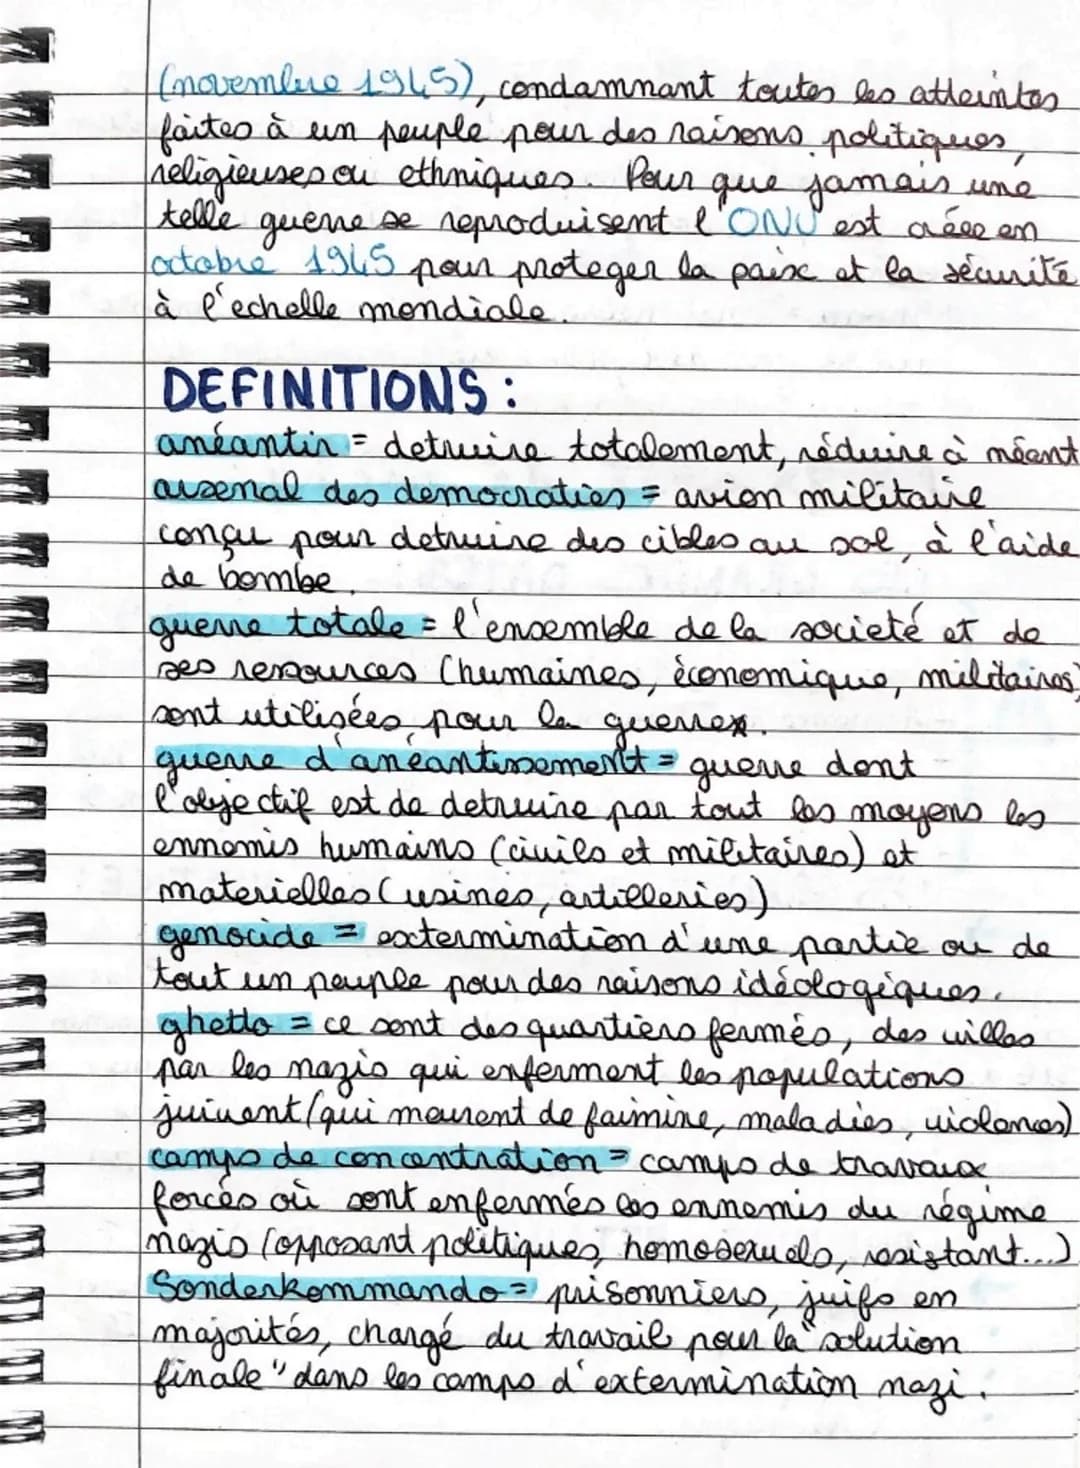 (novembre 1945), condamnant toutes les atteintes
faites à un peuple pour des raisons politiques,
religieuses ou ethniques. Pour que jamais une
telle guerre se reproduisent l'ONU est créée en
octobre 1945 pour proteger la paix et la sécurité
à l'echelle mondiale.
DEFINITIONS :
anéantir = detruire totalement, réduire à néant
arsenal des democraties = avion militaire
conçu pour detruire des cibles au sol, à l'aide
de bombe.
guerre totale = l'ensemble de la societé et de
ses ressources (humaines, économique, militaires)
sont utilisées pour la guerre.
guerre d'anéantissement = guerre dont
l'objectif est de detruire par tout les moyens les
ennemis humains (civils et militaires) et
materielles (usines, artilleries)
genocide = extermination d'une partie ou de
tout un peuple pour des raisons idéologiques.
ghetto = ce sont des quartiers fermés, des villes
par les nazis qui enferment les populations
juivent (qui meurent de faimine, maladies, violences)
camps de concentration = camps de travaux
forcés où sont enfermés les ennemis du régime
nazis (opposant politiques, homosexuels, resistant...)
Sonderkommando = prisonniers, juifs en
majorités, chargé du travail pour la "solution
finale" dans les camps d'extermination nazi.